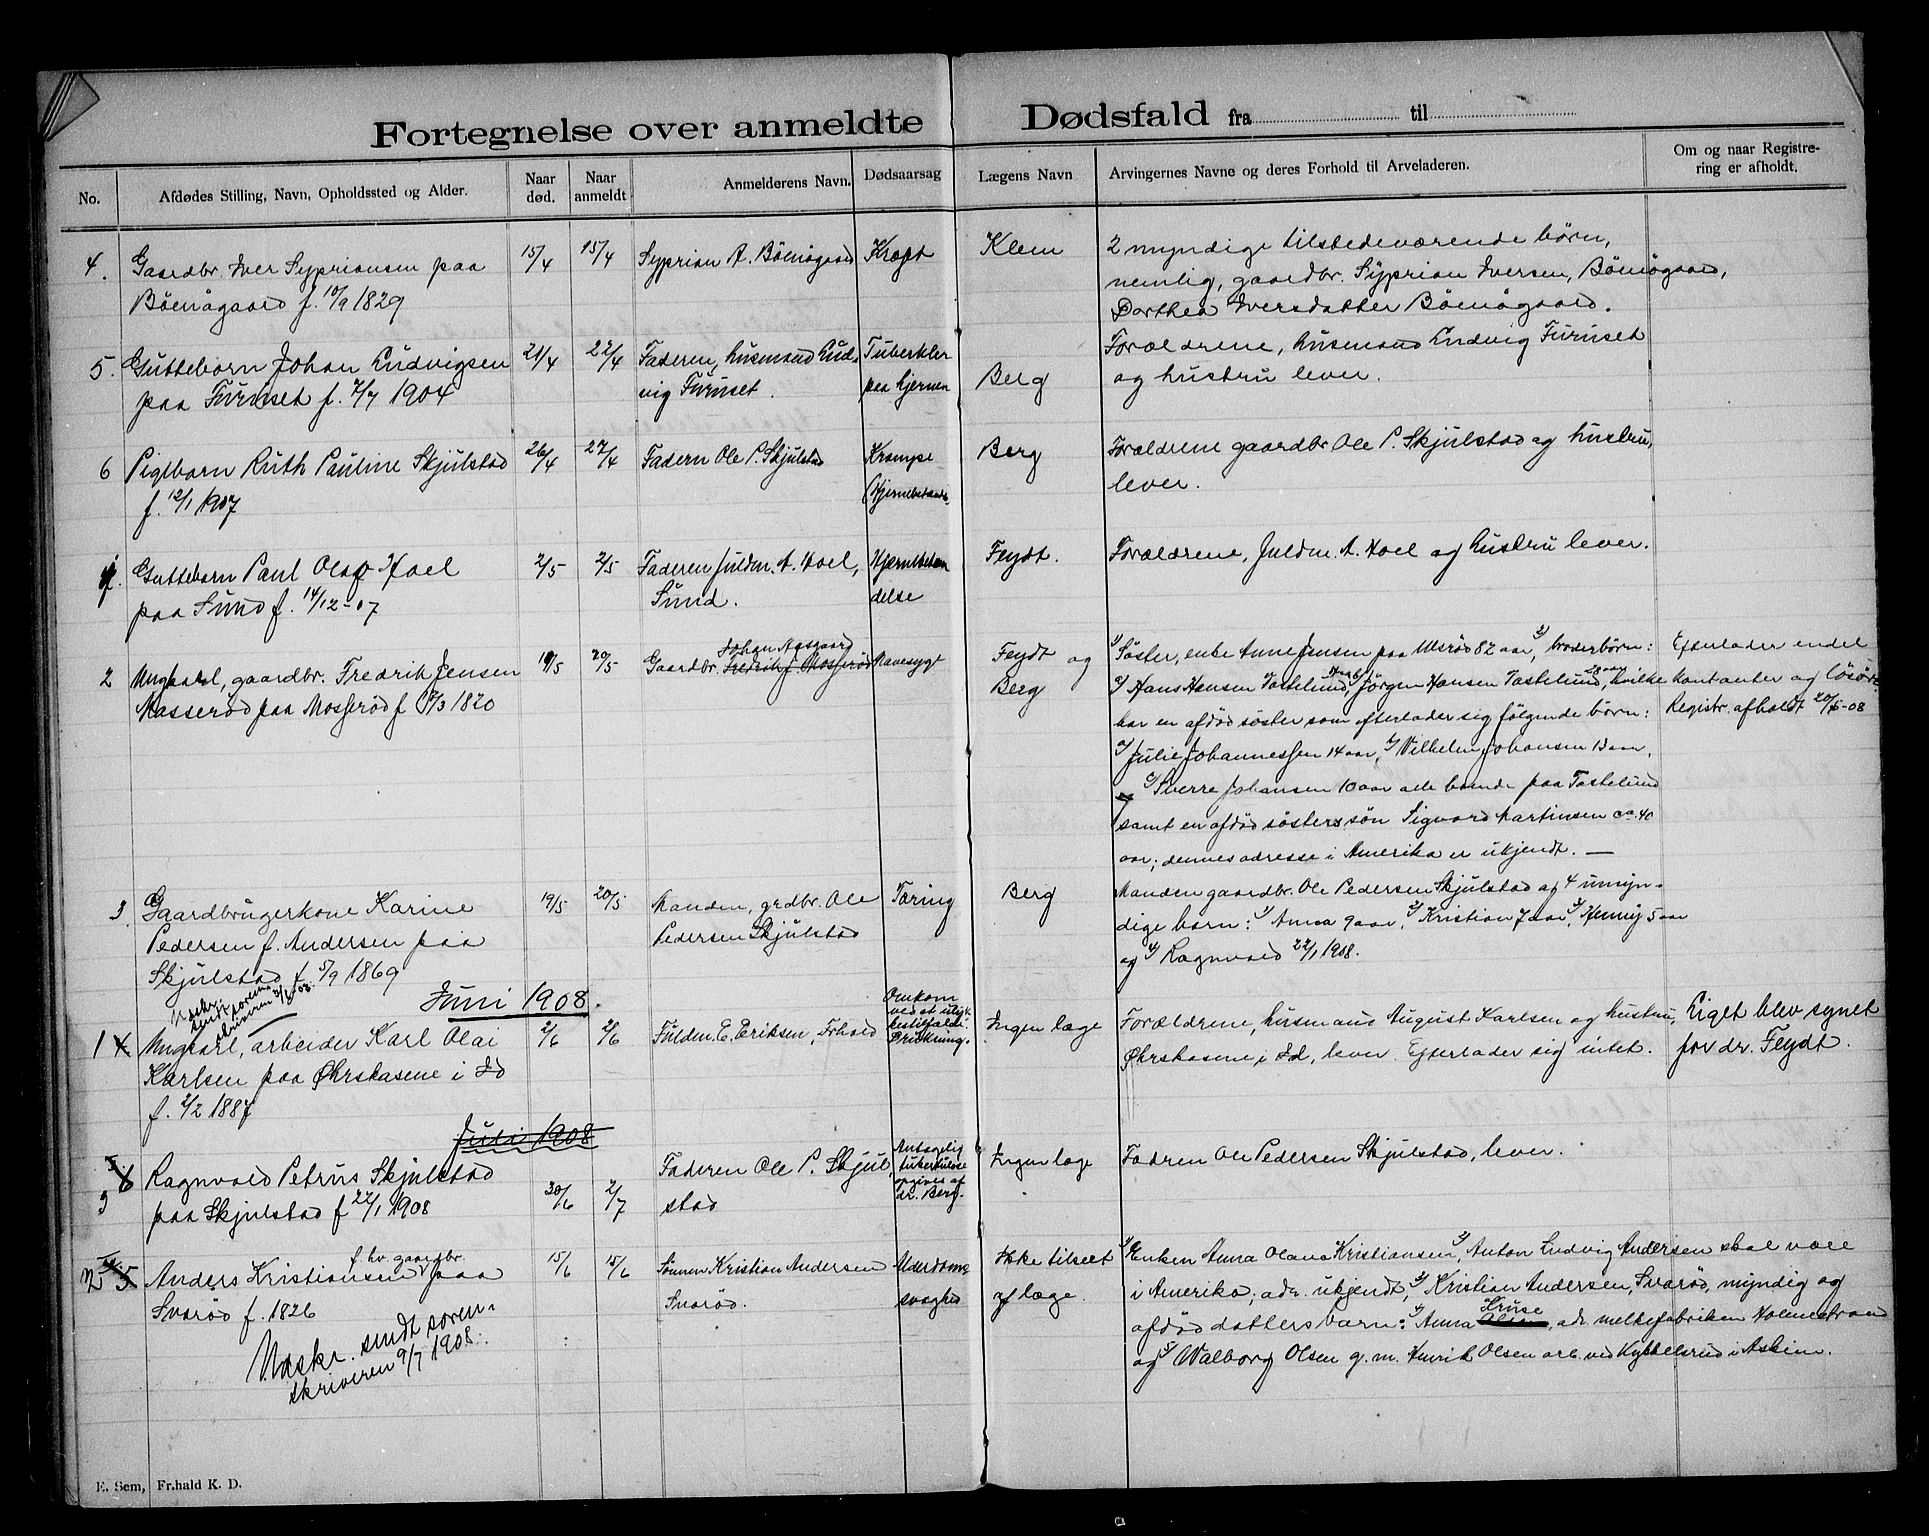 Fortegnelse over anmeldte Dødsfald fra til
No.
Afdødes Stilling, Navn, Opholdssted og Alder.
Naar død.
Naar anmeldt
Anmelderens Navn.
Dødsaarsag
Lægens Navn
Arvingernes Navne og deres Forhold til Arveladeren.
Om og naar Registre-
ring er afholdt.
4. Gaardbr. Iver Sypriansen paa 15/4 15/4 Syprian A. Böensgaard Kræft Klem 2 myndige tilstedeværende börn,
Böensgaard f. 10/9 1829 nemlig, gaardbr. Syprian Iversen, Böensgaard,
Dorthea Iversdatter Böensgaard.
5. Guttebarn Johan Ludvigsen 21/4 22/4 Faderen, husmand Lud- Tuberkler Forældrene, husmand Ludvig Furuset
paa Furuset f. 7/7 1904 vig Furuset. paa hjernen Berg og hustru lever.
6 Pigebarn Ruth Pauline Skjulstad 26/4 27/4 Fadern Ole P. Skjulstad Krampe Berg Forældrene gaardbr. Ole P. Skjulstad og hustru,
f. 12/1 1907 lever.
1. Guttebarn Paul Olaf Hoel 2/5 2/5 Faderen fuldm. A. Hoel, Hjernebetæn Feydt. Forældrene, fuldm. A. Hoel og hustru lever.
paa Sund f. 14/12-07 Sund. delse
2 Ungkarl, gaardbr. Fredrik Jensen 19/5 20/5 Gaardbr. Johan Aasgaard Mavesygt Feydt og 1/ Söster, enke Anne Jensen paa Ulsröd 82 aar, 2/ broderbörn: Efterlader endel
Masseröd paa Mosseröd f. 1820 Berg Hans Hansen Tastelund, Jörgen Hansen Tastelund, 28 aar, hvilke kontanter og lösöre.
har en afdöd söster som efterlader sig fölgende börn: Registr. afholdt 20/5-08
Julie Johannessen 14 aar, Vilhelm Johansen 13 aar,
Sverre Johansen 10 aar alle boende paa Tastelund
samt en afdöd sösters sön Sigvard Martinsen ca. 40
aar; dennes adresse i Amerika er ukjendt. —
3 Gaardbrugerkone Karine 19/5 20/5. Manden, grdbr. Ole Tæring Berg Manden gaardbr. Ole Pedersen Skjulstad og 4 umyn-
Pedersen f. Andersen paa Pedersen Skjulstad dige barn: 1/ Anna 9 aar, 2/ Kristian 7 aar, 3/ Henny 5 aar
Skjulstad f. 5/9 1869 og 4/ Ragnvald 22/1 1908.
Juni 1908.
1 Ungkarl, arbeider Karl Olai 2/6 2/6 Fuldm. E. Eriksen, Frhald Omkom
ved et ulyk-
kestilfælde:
Drukning. Ingen læge Forældrene, husmand August Karlsen og hustru, Liget blev synet
Karlsen paa Ørskasene i Id Ørskasene i Id, lever. Efterlader sig intet. for dr. Feydt.
f. 2/2 1887
Juli 1908
3 Ragnvald Petrus Skjulstad Faderen Ole P. Skjul- Antagelig
tuberkulose
opgives af
dr. Berg. Ingen læge Fadren Ole Pedersen Skjulstad, lever.
paa Skjulstad f 22/1 1908 30/6 2/7 stad
2 Anders Kristiansen f. hv. gaardbr. paa 15/6 15/6 Sönnen Kristian Andersen Alderdoms- Ikke tilseet 1/ Enken Anna Olana Kristiansen, 2/ Anton Ludvig Andersen skal være
Svaröd f. 1826 Svaröd. svaghed af læge. i Amerika; adr. ukjendt, 3/ Kristian Andersen, Svaröd, myndig og
afdöd datters barn: 4/ Anna Kruse, adr. melkefabriken Holmestrand
og 5/ Walborg Olsen g. m. Henrik Olsen arb. ved Kykkelsrud i Askim.
Udskr. sendt soren-
skriveren 9/7 1908.
E. Sem, Fr.hald K. D.